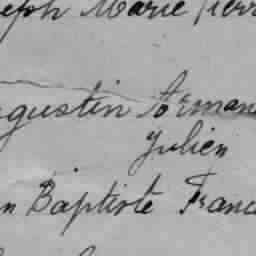 eph Marie Pierr
gustin Arman
Julien
n Baptiste Franc